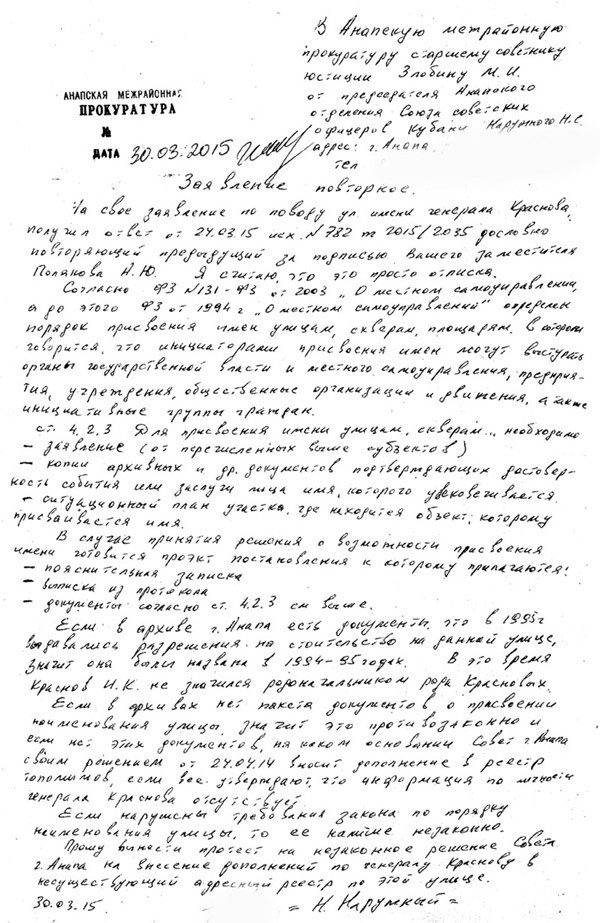 В Анапскую межрайонную
прокуратуру старшему советнику
юстиции Злобину М.И.
от председателя Анапского
отделения Союза советских
офицеров Кубани Наружного Н.С.
адрес: г. Анапа.
тел
АНАПСКАЯ МЕЖРАЙОННАЯ
ПРОКУРАТУРА
№
ДАТА 30.03.2015
Заявление повторное.
На свое заявление по поводу ул имени генерала Краснова,
получил ответ от 24.03.15 исх. N 782 ж 2015/2035 дословно
повторяющий предыдущий за подписью Вашего заместителя
Полякова Н.Ю. Я считаю, что это просто отписка.
Согласно ФЗ N131-ФЗ от 2003 „О местном самоуправлении,
а до этого ФЗ от 1994 г „О местном самоуправлений" определен
порядок присвоения имен улицам, скверам, площадям. в котором
говорится, что инициаторами присвоения имен могут выступать
органы государственной власти и местного самоуправления, предприя-
тия, учреждения, общественные организации и движения, а также
инициативные группы граждан.
ст. 4.2.3 Для присвоения имени улицам, скверам... необходимо
– заявление (от перечисленных выше субъектов)
– копии архивных и др. документов подтверждающих достовер-
ность события или заслуги лица имя, которого увековечивается
– ситуационный план участка, где находится объект, которому
присваивается имя.
В случае принятия решения о возможности присвоения
имени готовится проэкт постановления к которому прилагаются:
– пояснительная записка
– выписка из протокола
– документы согласно ст. 4.2.3 см выше.
Если в архиве г. Анапа есть документы, что в 1995г
выдавались разрешения на стоительство на данной улице,
значит она была названа в 1994-95 годах. В это время
Краснов И.К. не значился родоначальником рода Красновых.
Если в архивах нет пакета документов о присвоении
наименования улицы, значит это противозаконно и
если нет этих документов, на каком основании Совет г. Анапа
своим решением от 24.04.14 вносит дополнение в реестр
топонимов, если все утверждают, что информация по личности
генерала Краснова отсутствует
Если нарушены требования закона по порядку
наименования улицы, то ее наличие незаконно.
Прошу вынести протест на незаконное решение Совета
г. Анапа на внесение дополнений по генералу Краснову в
несуществующий адресный реестр по этой улице.
30.03.15. = Н. Наружный =